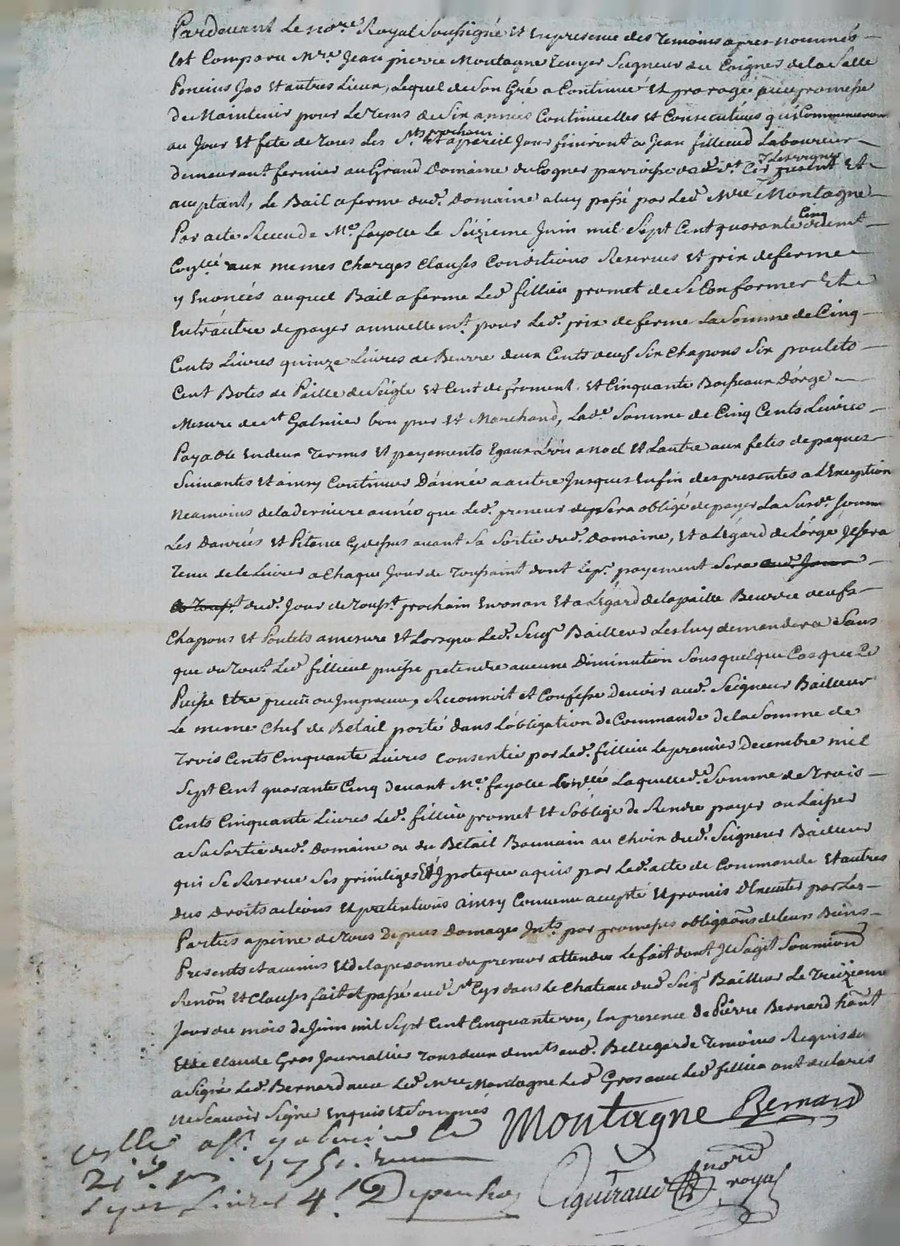 Pardevant Le nore Royal Soussigné Et En presence des Temoins apres nommés
Est Comparu Mre Jean pierre Montagne Ecuyer Seigneur du Coignes de la Salle
Poncins Jas Et autres Lieux, Lequel de Son Gré a Continué Et prorogé avec promesse
De Maintenir pour Le tems de Six années Continuelles Et Consecutives qui Commenceront
au Jour Et fete de Tous Les Sts prochain Et a pareil Jour finiront a Jean fillieud Laboureur
demeurant fermier au Grand Domaine du Cogner parroisse de St Cir Les vignes present Et
acceptant, Le Bail a ferme dud. Domaine a luy passé par Led. Mre Montagne
Par acte Recu de Me fayolle Le Seizieme Juin mil Sept Cent quarante Cinq
aux memes Charges Clauses Conditions Reserves Et prix de ferme
y Enoncés auquel Bail a ferme Led. fillieu promet de Se Conformer Et
Entr'autre de payer annuellemt. pour Led. prix de ferme La Somme de Cinq
Cents Livres quinze Livres de Beurre deux Cents oeufs Six Chapons Six poulets
Cent Botes de Paille de Seigle Et Cent de froment. Et Cinquante Boisseaux d'orge
Mesure de St Galmier bon pur Et Marchand, Lade Somme de Cinq Cents Livres
Payable En deux Termes Et payements Egaux L'un a noel Et Lautre aux fetes de paques
Suivantes Et ainsy Continuer D'année a autre Jusques Enfin des presentes a L'Exception
Neamoins de la derniere année que Led. preneur Sera obligé de payer La Susde Somme
Les Danrées Et Pitance avant Sa Sortie dud. Domaine, Et a L'égard de L'orge Il Sera
Tenu de le Livrer a Chaque Jour de Toussaint dont Le pr. payement Sera aud. Jour
de Toust. dud. Jour de Toust. prochain En un an Et a L'égard de la paille Beurre oeufs
Chapons Et Poulets a mesure Et Lorsque Led. Seigr Bailleur Les luy demandera Sans
que du Tout Led. fillieu puisse pretendre aucune Diminution Sous quelque Cas que Ce
Puisse Etre preveu ou Impreveu, Reconnoit et Confesse Devoir aud. Seigneur Bailleur
Le meme Chef de Betail porté dans L'obligation de Commande de la Somme de
Trois Cents Cinquante Livres consentie par Led. fillieu Le premier Decembre mil
Sept Cent quarante Cinq devant Me fayolle Laquelle de Somme de Trois
Cents Cinquante Livres Led. fillieu promet Et S'oblige de Rendre payer ou Laisser
a Sa Sortie dud. Domaine ou du Betail Bonnain au Choix dud. Seigneur Bailleur
qui Se Reserve Ses privileges Et Ypoteque aquis par Led. acte de Commande Et autres
Des Droits actions Et pretentions ainsy Convenu accepté Et promis D'Executer par Les
Parties a peine de Tous Depens Domages Ints. par promesses obligaons de leurs Biens
Presents et avenirs Et de la personne du preneur attendu Le fait dont Il S'agit Soumion
Renon Et Clauses fait et passé aud. St Cyr dans Le Chateau dud. Seigr Bailleur Le Treizieme
Jour du mois de Juin mil Sept Cent Cinquante un, En presence de Pierre Bernard
Et de Claude Gros Journallier Tous deux demts. aud. Bellegarde Temoins Requis
a Signé Led. Bernard avec Led. Mre Montagne Led. Gros avec Led. fillieu ont declaré
Ne Scavoir Signer Enquis Et Sommés
Montagne Bernard
Ciguiraud nore royal